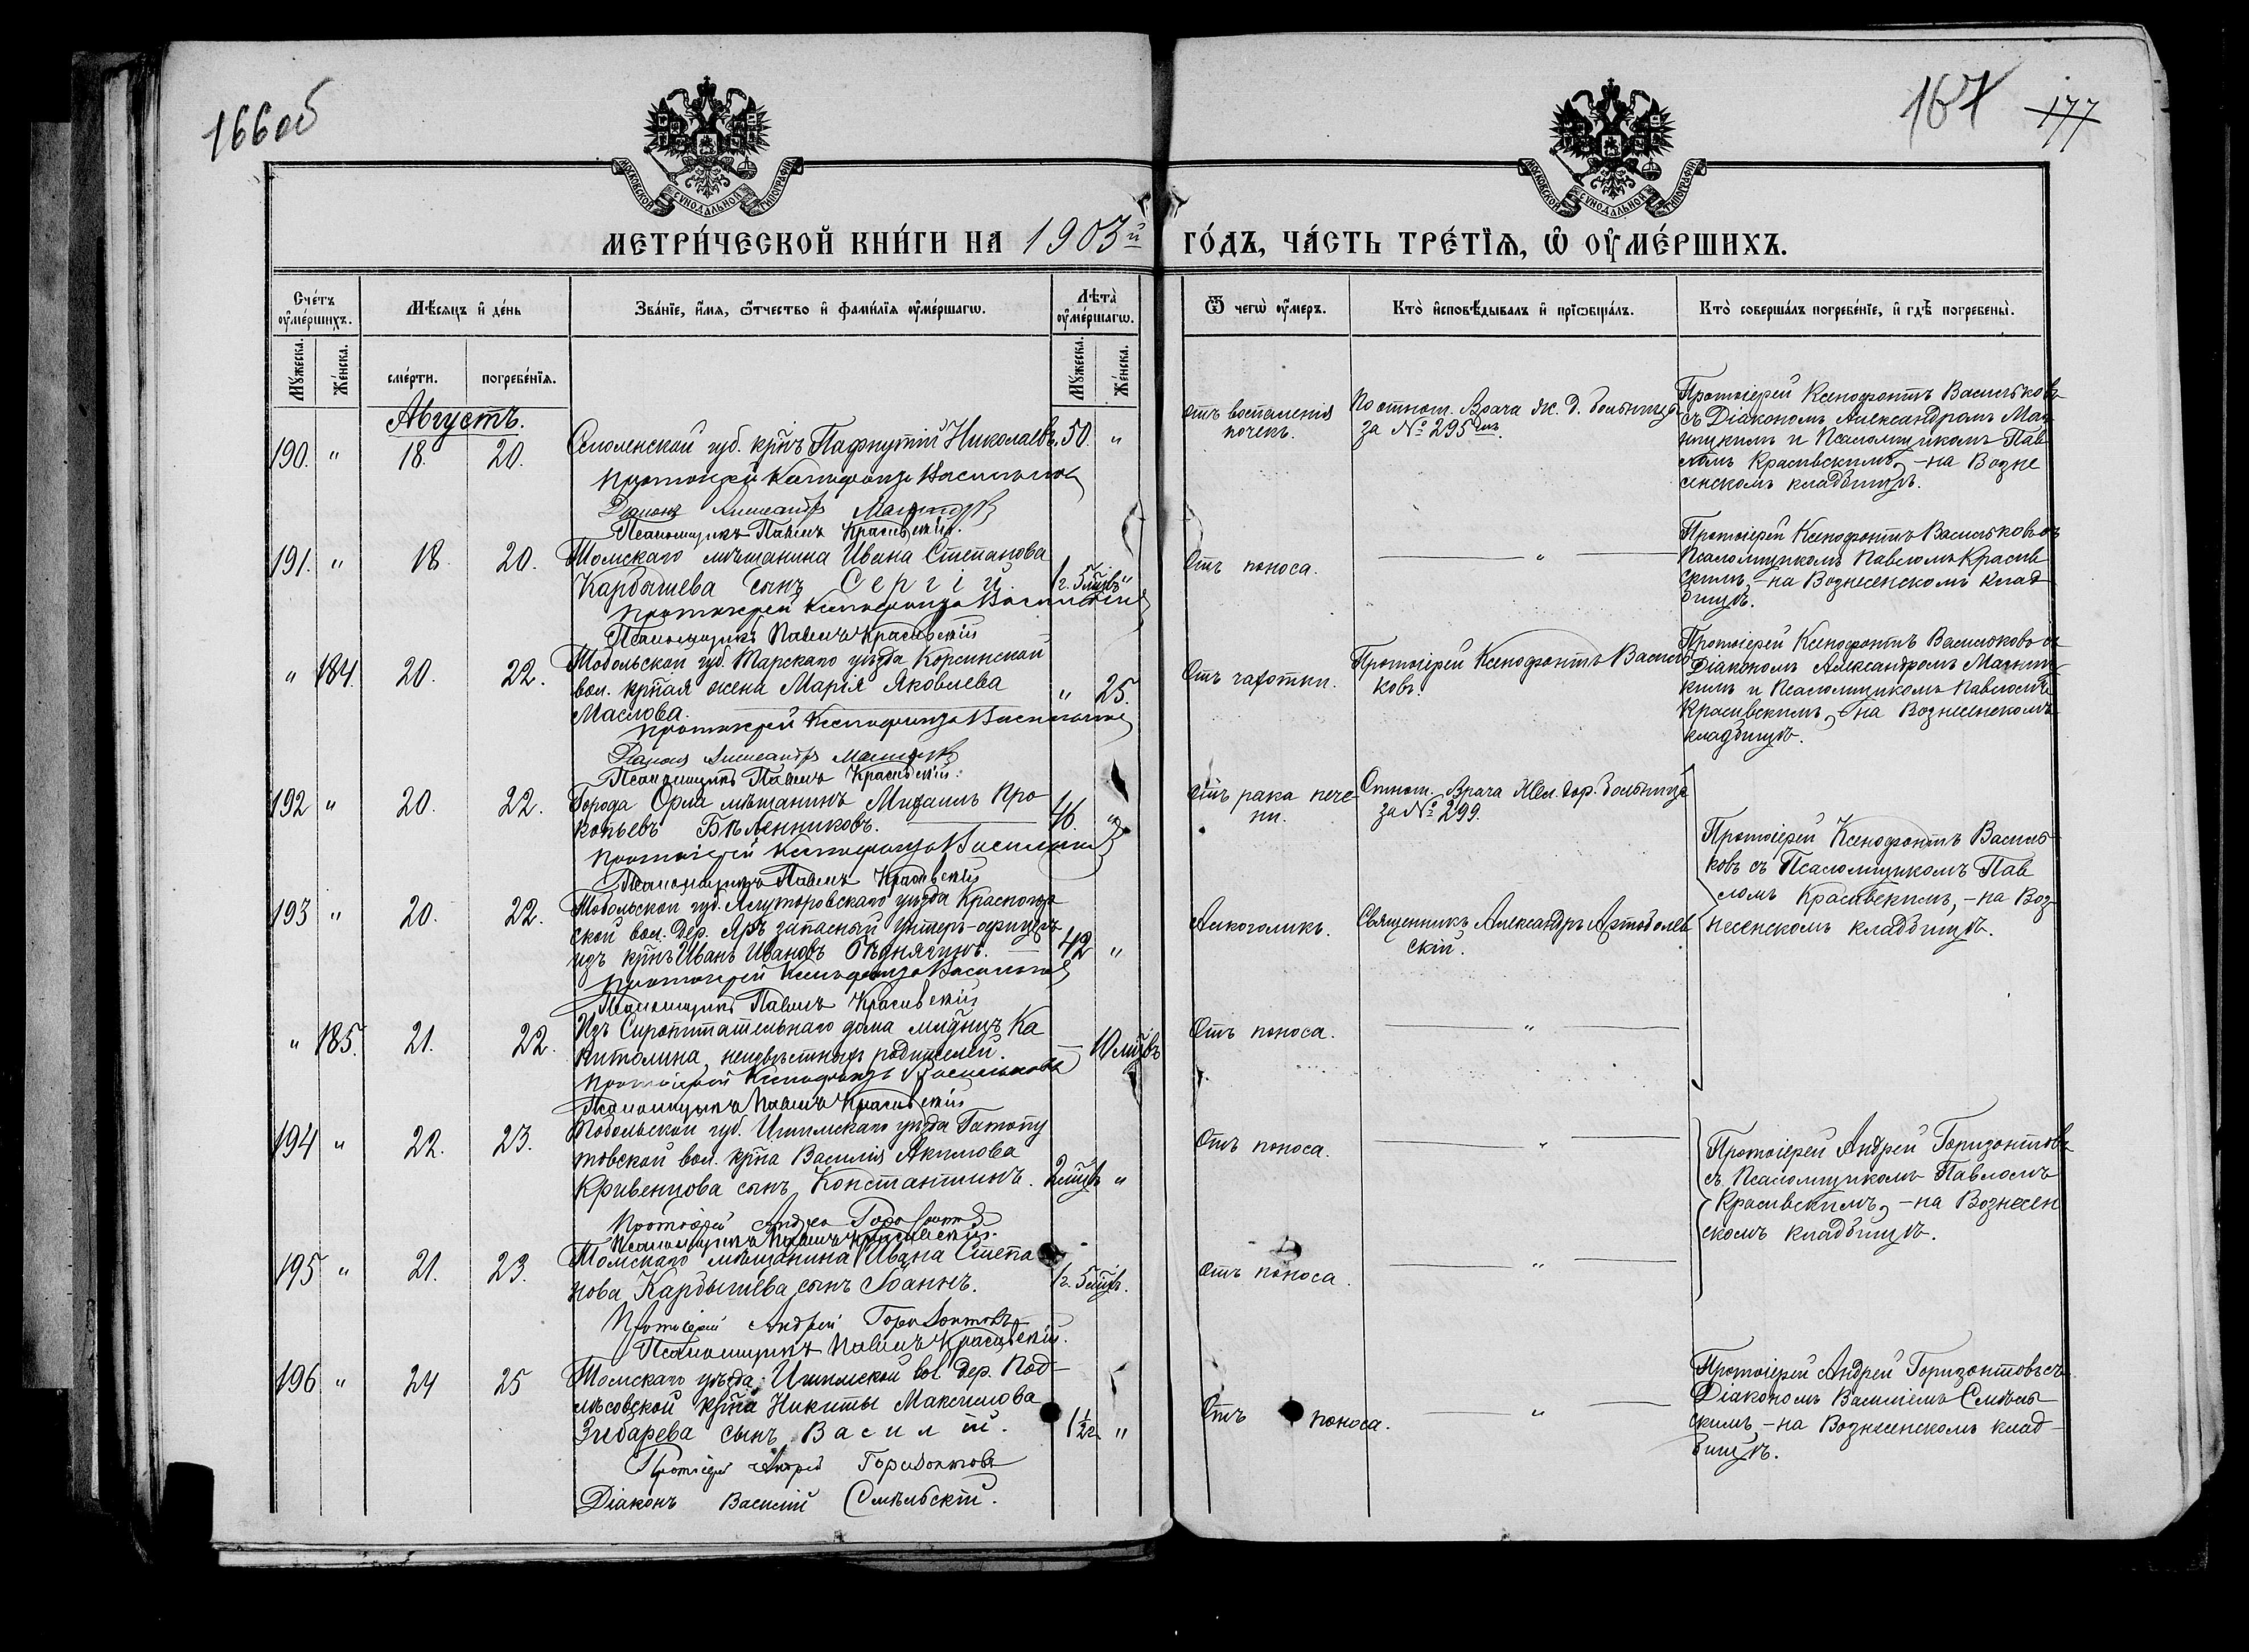 166об
167 177
МОСКОВСКОЙ СѴНОДАЛЬНОЙ ТИПОГРАФІИ
МОСКОВСКОЙ СѴНОДАЛЬНОЙ ТИПОГРАФІИ
МЕТРИ́ЧЕСКОЙ КНИ́ГИ НА 1903й ГО́ДЪ, ЧА́СТЬ ТРЕ́ТІѦ, Ѡ ОУ҆МЕ́РШИХЪ.
Сче́тъ оу҆ме́ршихъ.
Мѣ́сяцъ и҆ де́нь
Зва́нїе, и҆́мѧ, ѻ҆́тчество и҆ фами́лїѧ оу҆ме́ршагѡ.
Лѣ́та оу҆ме́ршагѡ.
Ѿ чегѡ̀ оу҆́меръ.
Кто̀ и҆сповѣ́дывалъ и҆ прїѡбща́лъ.
Кто̀ соверша́лъ погребе́нїе, и҆ гдѣ̀ погребены̀.
Мꙋ́жеска.
Же́нска.
сме́рти.
погребе́нїѧ.
Мꙋ́жеска.
Же́нска.
Августъ.
190. " 18. 20.
Смоленской губ. кр̃нъ Пафнутій Николаевъ. 50. "
Протоіерей Ксенофонтъ Васильковъ
Діаконъ Александръ
Псаломщикъ Павелъ Красивскій.
Отъ воспаленія
почекъ.
По отнош. Врача Ж. Д. больницы
за № 295
Протоіерей Ксенофонтъ Васильковъ
съ Діакономъ Александромъ
и Псаломщикомъ Пав
ломъ Красивскимъ, - на Возне
сенскомъ кладбищѣ.
191. " 18. 20.
Томскаго мѣщанина Ивана Степанова
Карбышева сынъ Сергій. 1г. 5 мцвъ "
Протоіерей Ксенофонтъ Васильковъ
Псаломщикъ Павелъ Красивскій
Отъ поноса.
"
Протоіерей Ксенофонтъ Васильковъ съ
Псаломщикомъ Павломъ Красив
скимъ, - на Вознесенскомъ клад
бищѣ.
" 184. 20. 22.
Тобольской губ. Тарскаго уѣзда Корсинской
вол. кр̃ная жена Марія Яковлева
Маслова. " 25.
Протоіерей Ксенофонтъ Васильковъ
Діаконъ Александръ
Псаломщикъ Павелъ Красивскій.
Отъ чахотки.
Протоіерей Ксенофонтъ Василь
ковъ.
Протоіерей Ксенофонтъ Васильковъ съ
Діакономъ Александромъ
и Псаломщикомъ Павломъ
Красивскимъ, - на Вознесенскомъ
кладбищѣ.
192 " 20. 22.
Города Орла мѣщанинъ Михаилъ Про
копьевъ Бѣленниковъ. 46. "
Протоіерей Ксенофонтъ Васильковъ
Псаломщикъ Павелъ Красивскій
Отъ рака пече-
ни.
Отнош. Врача Жел. дор. больницы
за № 299.
Протоіерей Ксенофонтъ Василь
ковъ съ Псаломщикомъ Пав
ломъ Красивскимъ, - на Воз-
несенскомъ кладбищѣ.
193 " 20. 22.
Тобольской губ. Ялуторовскаго уѣзда Красногор
ской вол. дер. Яръ запасный унтеръ-офицеръ
изъ кр̃нъ Иванъ Ивановъ Бѣднягинъ. 42 "
Протоіерей Ксенофонтъ Васильковъ
Псаломщикъ Павелъ Красивскій
Алкоголикъ.
Священникъ Александръ Артоболев
скій.
" 185. 21. 22.
Изъ Сиропитательнаго дома млд̃нцъ Ка
питолина, неизвѣстныхъ родителей. — 10 мцвъ
Протоіерей Ксенофонтъ Васильковъ
Псаломщикъ Павелъ Красивскій
Отъ поноса.
"
194 " 22. 23.
Тобольской губ. Ишимскаго уѣзда Готопу
товской вол. кр̃на Василія Акимова
Кривенцова сынъ Константинъ. 2 мцвъ "
Протоіерей Андрей Горизонтовъ
Псаломщикъ Павелъ Красивскій.
Отъ поноса.
"
Протоіерей Андрей Горизонтовъ
съ Псаломщикомъ Павломъ
Красивскимъ, - на Вознесен
скомъ кладбищѣ.
195 " 21. 23.
Томскаго мѣщанина Ивана Степа
нова Карбышева сынъ Іоаннъ. 1г. 5 мцвъ.
Протоіерей Андрей Горизонтовъ
Псаломщикъ Павелъ Красивскій.
Отъ поноса.
"
196 " 24 25
Томскаго уѣзда Ишимской вол. дер. Под-
лѣсовской кр̃на Никиты Максимова
Зибарева сынъ Василій. 1½ г. "
Протоіерей Андрей Горизонтовъ
Діаконъ Василій Смѣльскій.
Отъ поноса.
"
Протоіерей Андрей Горизонтовъ съ
Діакономъ Василіемъ Смѣль-
скимъ, - на Вознесенскомъ клад-
бищѣ.